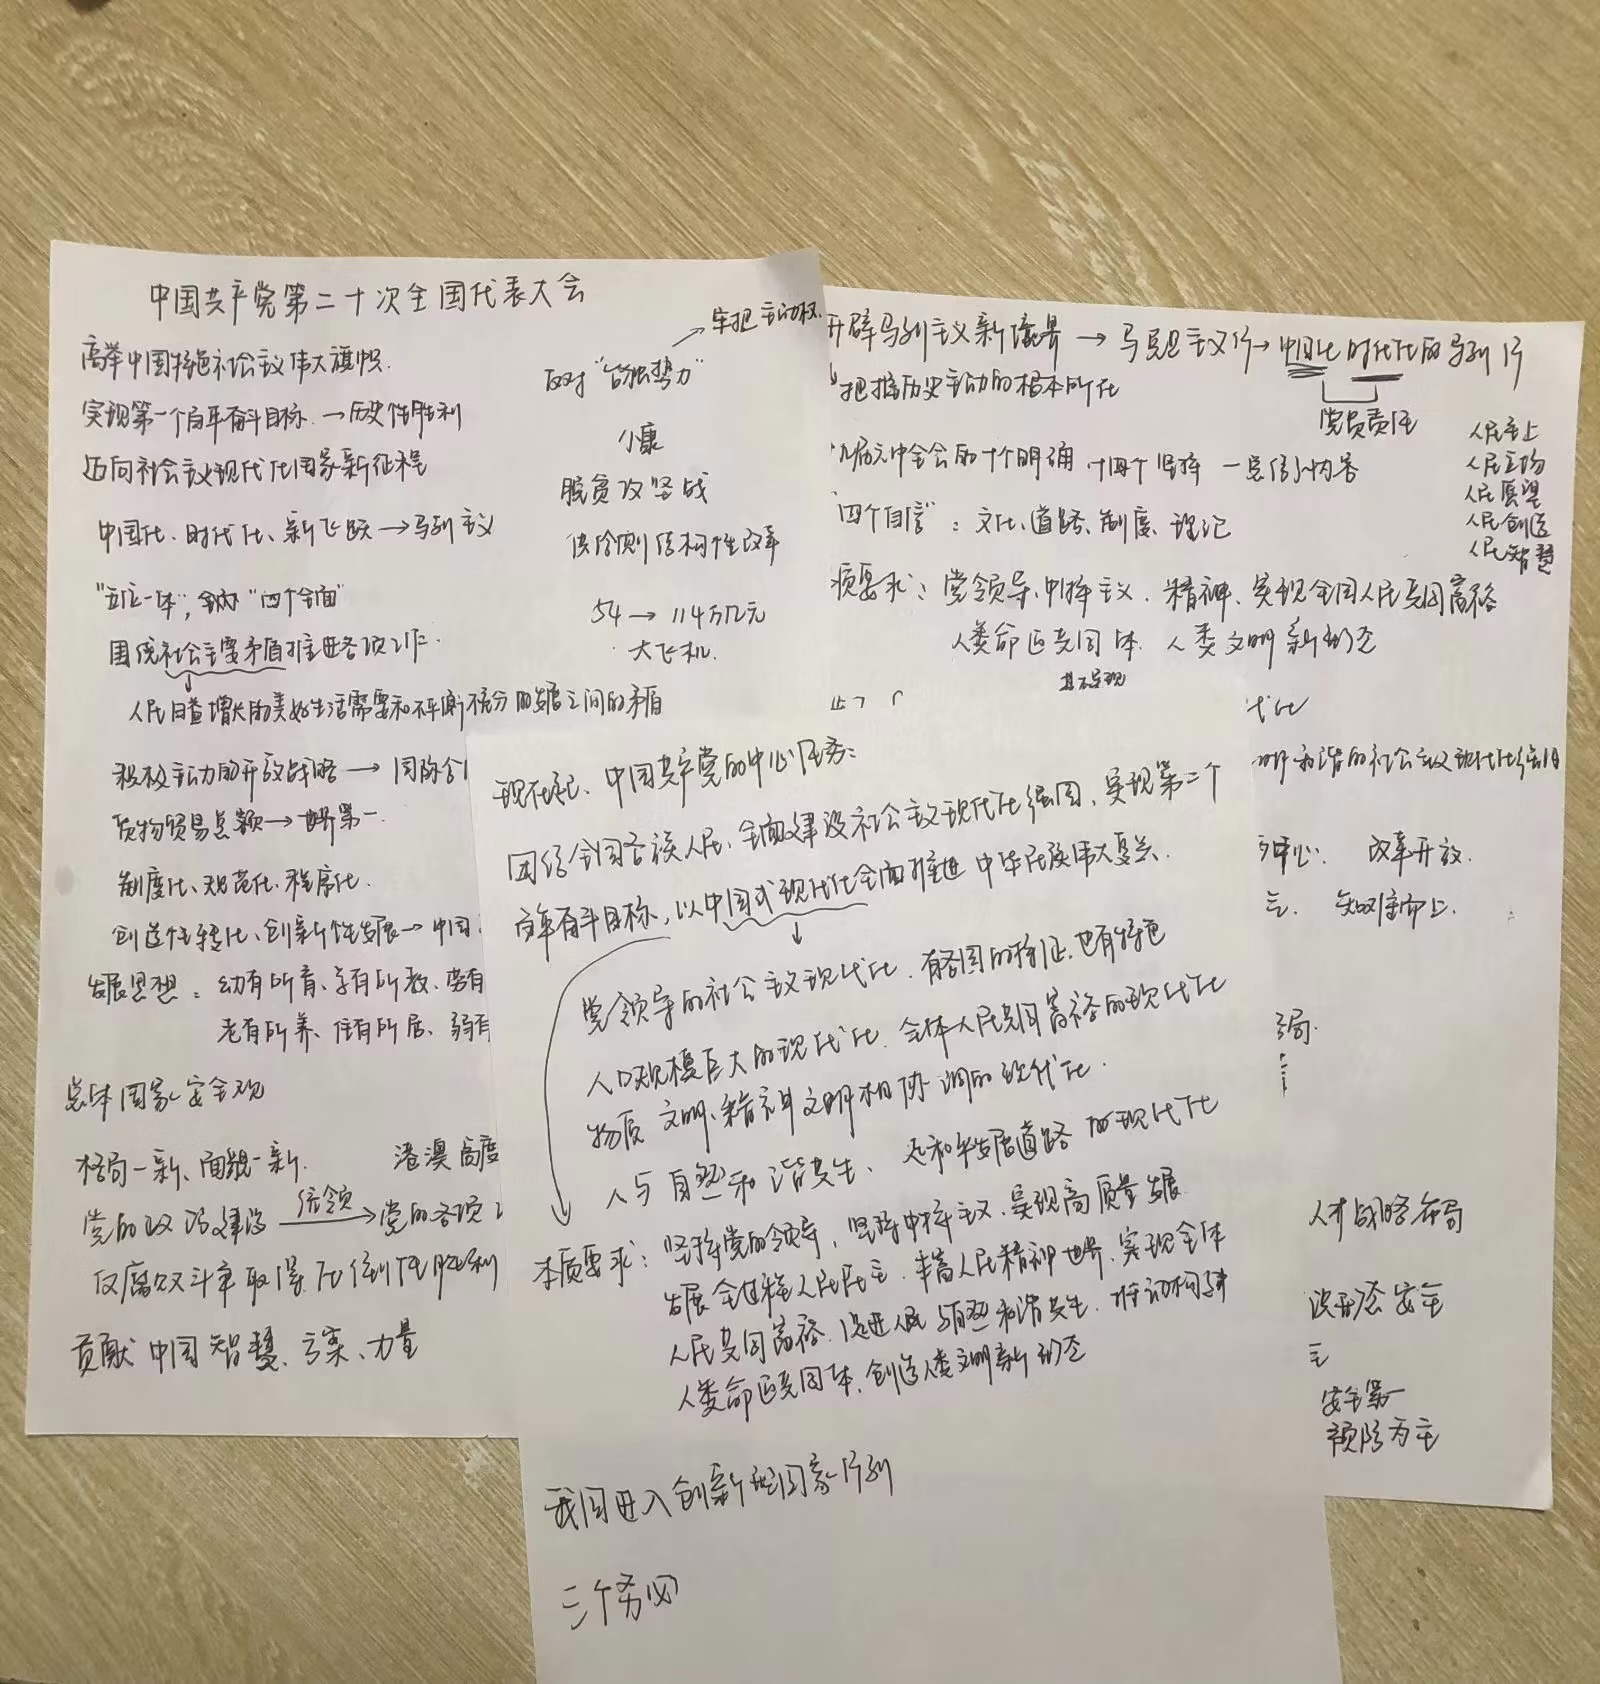 中国共产党第二十次全国代表大会
高举中国特色社会主义伟大旗帜.
实现第一个百年奋斗目标.→历史性胜利
迈向社会主义现代化国家新征程
中国化、时代化、新飞跃→马列主义
"五位一体","四个全面"
围绕社会主要矛盾推进各项工作.
人民日益增长的美好生活需要和不平衡不充分的发展之间的矛盾
积极主动的开放战略→国际合
货物贸易总额→世界第一.
制度化、规范化、程序化.
创造性转化、创新性发展→中国
发展思想:幼有所育、学有所教、劳有
老有所养、住有所居、弱有
总体国家安全观
格局一新、面貌一新.
港澳高度
党的政治建设 统领→党的各项
反腐败斗争取得压倒性胜利
贡献中国智慧、方案、力量
→牢把主动权
反对"台独势力"
小康
脱贫攻坚战
供给侧结构性改革
54→114万亿元
大飞机.
现在起、中国共产党的中心任务:
团结全国各族人民、全面建设社会主义现代化强国、实现第二个
百年奋斗目标,以中国式现代化全面推进中华民族伟大复兴.
党领导的社会主义现代化.有各国的特征.也有特色
人口规模巨大的现代化.全体人民共同富裕的现代化
物质文明、精神文明相协调的现代化.
人与自然和谐共生、走和平发展道路的现代化
本质要求:坚持党的领导,坚持中特主义.实现高质量发展
发展全过程人民民主.丰富人民精神世界.实现全体
人民共同富裕.促进人民与自然和谐共生.推动构建
人类命运共同体.创造人类文明新形态
我国进入创新型国家行列
三个务必
开辟马列主义新境界→马克思主义行→中国化时代化的马列行
党员责任
把握历史主动的根本所在
九届六中全会的十个明确 十四个坚持
人民至上
人民立场
人民愿望
人民创造
人民智慧
"四个自信":文化、道路、制度、理论
质要求:党领导、中特主义.精神、实现全国人民共同富裕
人类命运共同体.人类文明新形态
代化
和谐的社会主义现代化强国
中心.改革开放.
局.
人才战略布局
识形态安全
安全第一
预防为主